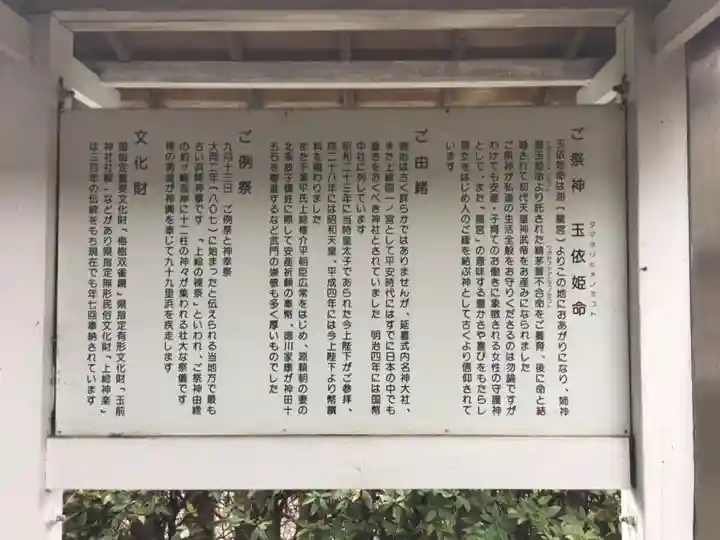 ご祭神　玉依姫命
タマヨリヒメノミコト
玉依姫命は海（龍宮）よりこの地におあがりになり、姉神
豊玉姫命より託された鵜茅葺不合命をご養育、後に命と結
婚されて初代天皇神武帝をお産みになられました
ご祭神が私達の生活全般をお守りくださるのは勿論ですが
わけても安産・子育てのお働きに象徴される女性の守護神
として、また、龍宮の意味する豊かさや喜びをもたらし
縁立をはじめ人のご縁を結ぶ神として古くより信仰されて
います
ご由緒
創祀は古く詳らかではありませんが、延喜式内名神大社、
また上総國一ノ宮として平安時代にはすでに日本の中でも
重きを置くべき神社とされていました　明治四年には国幣
中社に列しています
昭和二十三年に当時皇太子であられた今上陛下がご参拝、
同二十八年には昭和天皇、平成四年には今上陛下より幣饌
料を賜わりました
また下総平氏上総権介平朝臣広常をはじめ、源頼朝の妻の
北条政子懐妊に際して安産祈願の奉幣、徳川家康が神田十
五石を寄進するなど武門の崇敬も多く厚いものでした
ご例祭
九月十三日　ご例祭と神幸祭
大同二年（八〇七）に始まったと伝えられる当地方で最も
古い浜降神事です　「上総の裸祭」といわれ、ご祭神由縁
の釣ヶ崎海岸に十二社の神々が集われる壮大な祭儀です
裸の男達が神輿を奉じて九十九里浜を疾走します
文化財
国指定重要文化財「梅樹双雀鏡」県指定有形文化財「玉前
神社社殿」などがあり県指定無形民俗文化財「上総神楽」
は三百年の伝統をもち現在でも年七回奉納されています